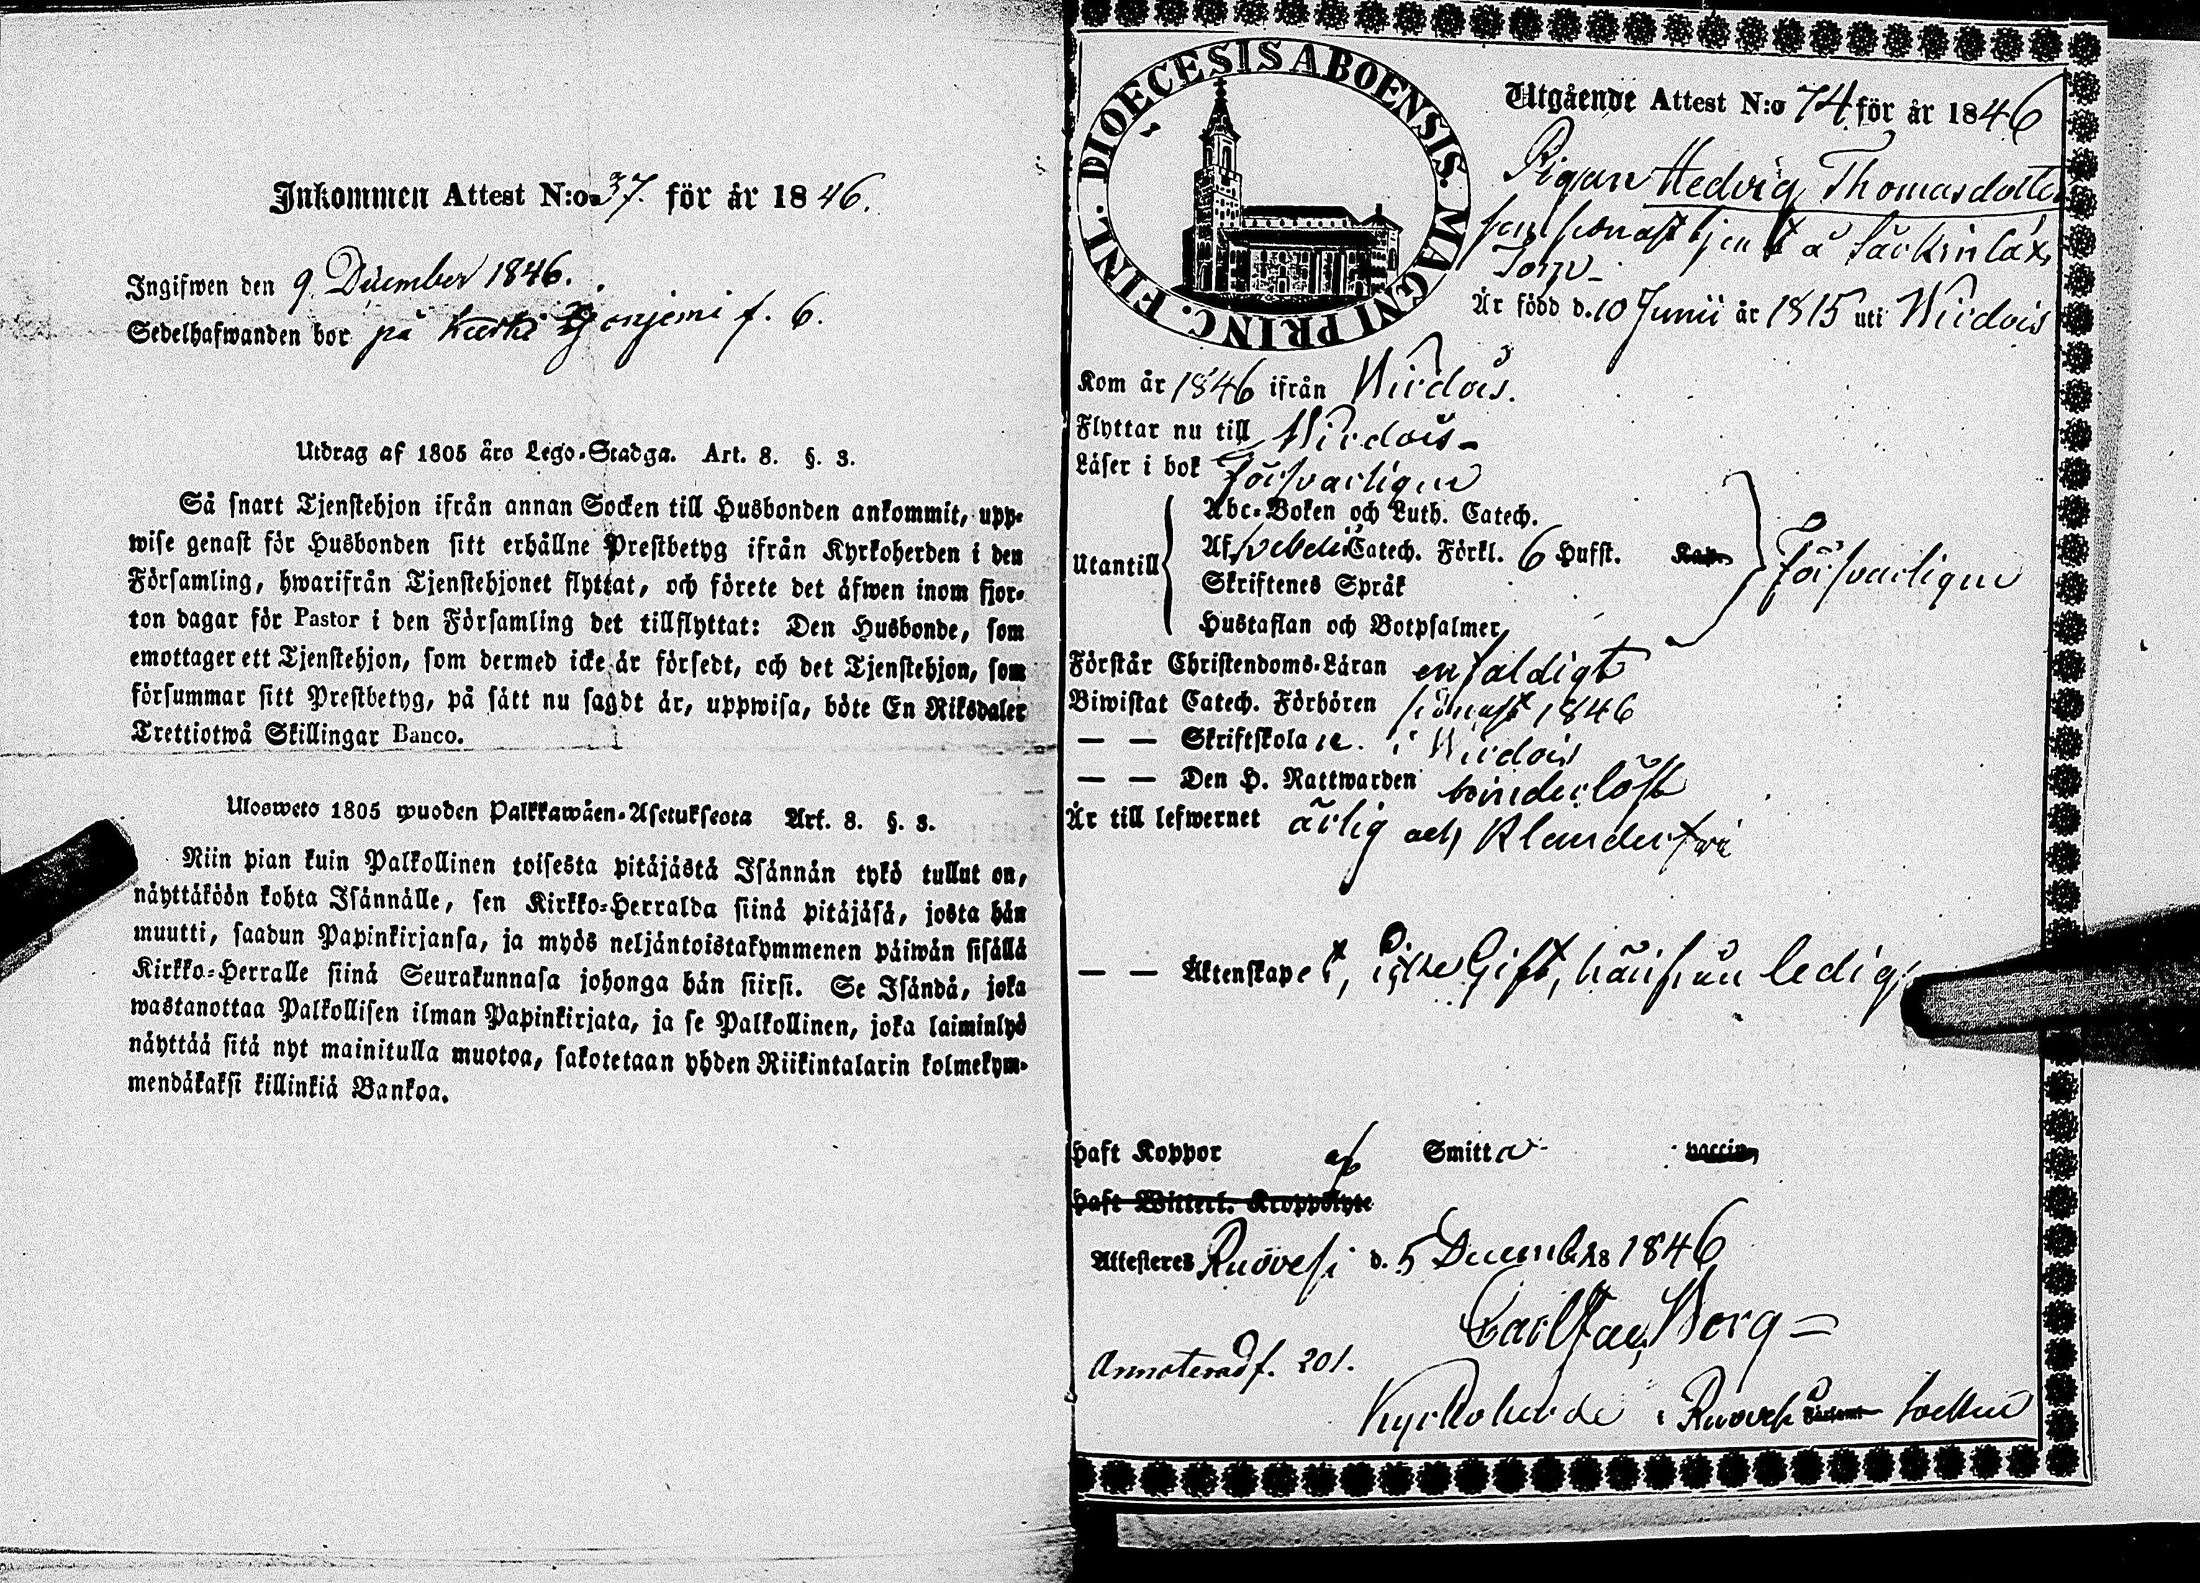 Inkommen Attest N:o 37. för år 1846.
Ingifwen den 9 December 1846.
Sedelhafwanden bor på f. 6.
Utdrag af 1805 års Lego-Stadga. Art. 8. §. 3.
Så snart Tjenstehjon ifrån annan Socken till Husbonden ankommit, upp-
wise genast för Husbonden sitt erhållne Prestbetyg ifrån Kyrkoherden i den
Församling, hwarifrån Tjenstehjonet flyttat, och förete det äfwen inom fjor-
ton dagar för Pastor i den Församling det tillflyttat: Den Husbonde, som
emottager ett Tjenstehjon, som dermed icke är försedt, och det Tjenstehjon, som
försummar sitt Prestbetyg, på sätt nu sagdt är, uppwisa, böte En Riksdaler
Trettiotwå Skillingar Banco.
Ulosweto 1805 wuoden Palkkawäen-Asetuksesta Art. 8. §. 3.
Niin pian kuin Palkollinen toisesta pitäjästä Isännän tykö tullut on,
näyttäköön kohta Isännälle, sen Kirkko-Herralda siinä pitäjäsä, josta hän
muutti, saadun Papinkirjansa, ja myös neljäntoistakymmenen päiwän sisällä
Kirkko-Herralle siinä Seurakunnasa johonga hän siirsi. Se Isändä, joka
wastanottaa Palkollisen ilman Papinkirjata, ja se Palkollinen, joka laiminlyö
näyttää sitä nyt mainitulla muotoa, sakotetaan yhden Riikintalarin kolmekym-
mendäkaksi killinkiä Bankoa.
DIOECESIS ABOENSIS. MAGNI PRINC. FINL.
Utgående Attest N:o 74 för år 1846
Pigan Hedvig Thomasdotter
sedan tjent å
Torp
Är född d. 10 Junii år 1815 uti Wirdois
Kom år 1846 ifrån Wirdois.
Flyttar nu till Wirdois
Läser i bok Försvarligen
Utantill
Abc-Boken och Luth. Catech.
Af Svebelii Catech. Förkl. 6 Hufst. Kap.
Skriftenes Språk
Hustaflan och Botpsalmer
Försvarligen
Förstår Christendoms-Läran enfaldigt
Biwistat Catech. Förhören senast 1846
— — Skriftskola i Wirdois
— — Den H. Nattwarden
Är till lefwernet ärlig och klanderfri
— — Äktenskapet, icke Gift, härifrån ledig
Haft Koppor af Smitta vaccin
Haft Witterl. Kroppslyte
Attesteres Ruovesi d. 5 December 1846
Carl Borg
Annoterad f. 201.
Kyrkoherde i Ruovesi Församl Socken